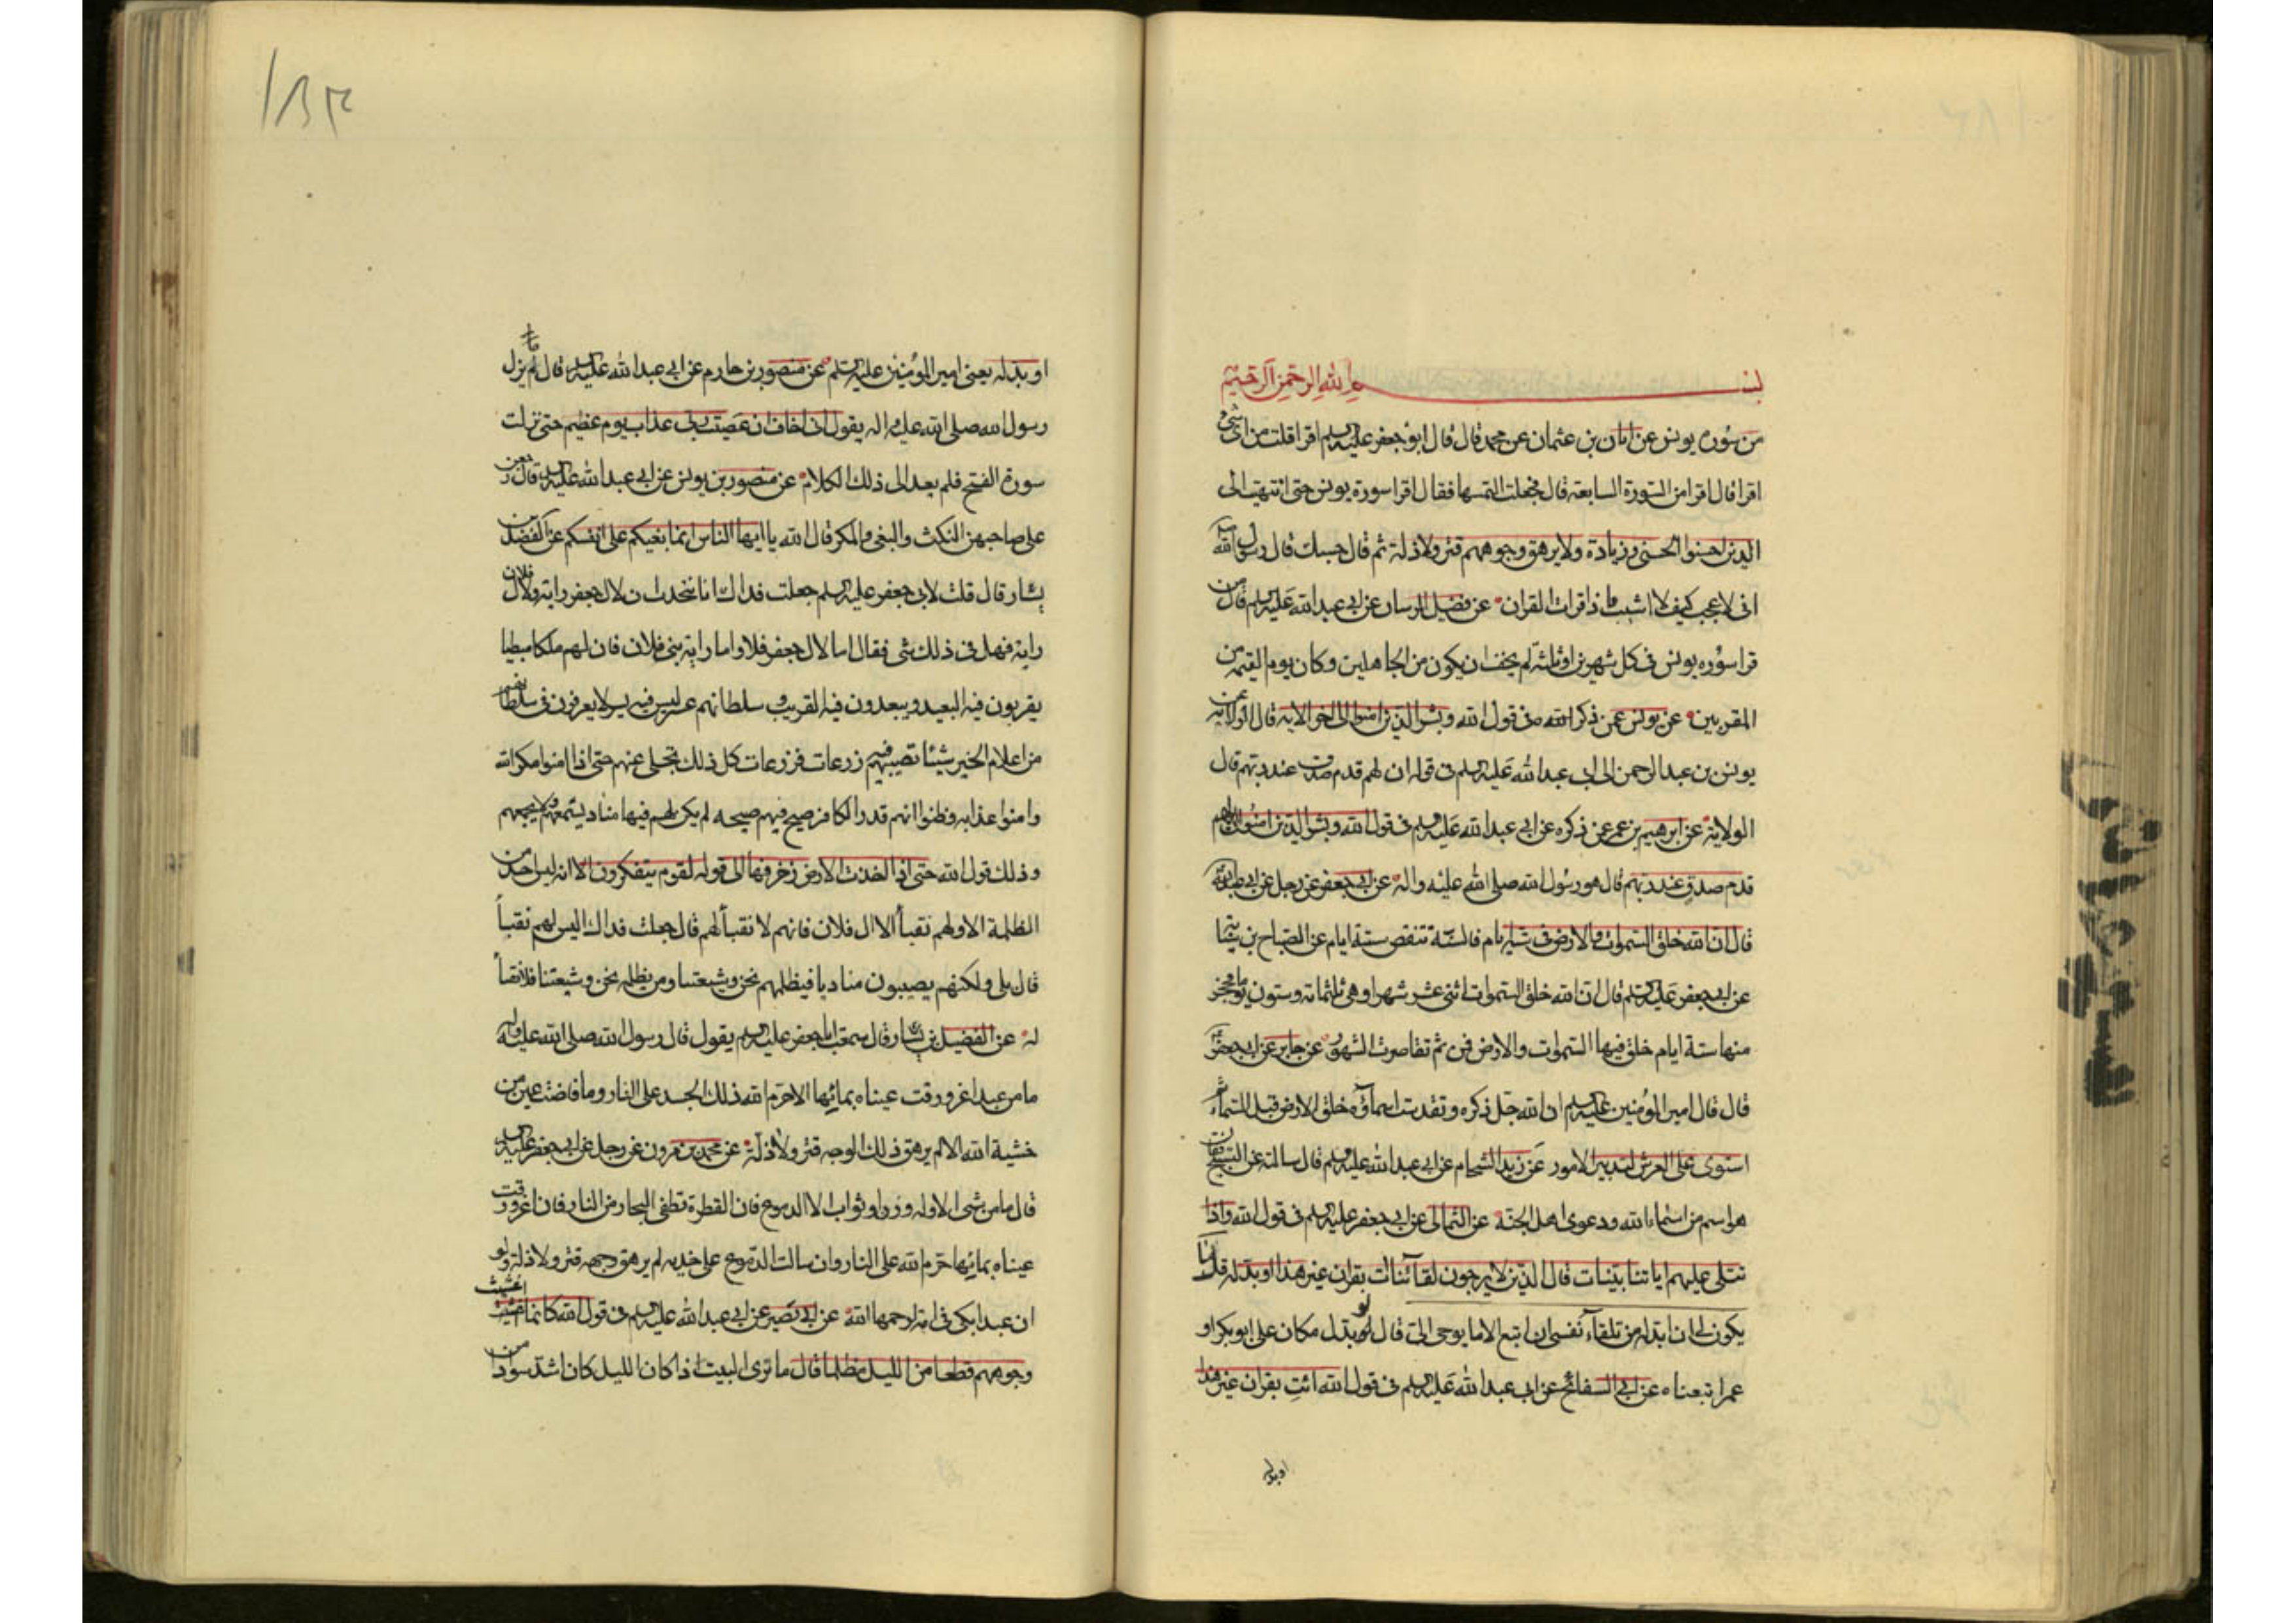 بسم الله الرحمن الرحيم
من سورة يونس عن ابان بن عثمان عن محمد قال قال ابو جعفر عليه السلم اقرا قلت من اى شئ
اقرا قال اقرا من السورة السابعة قال فجعلت التمسها فقال اقرا سورة يونس حتى انتهيت الى
الذين احسنوا الحسنى وزيادة ولا يرهق وجوههم قتر ولا ذلة ثم قال حسبك قال رسول الله
انى لاعجب كيف لا اشيب اذا قرات القران عن فضيل الرسان عن ابى عبد الله عليه السلم قال من
قرا سوره يونس فى كل شهرين او ثلثة لم يخف ان يكون من الجاهلين وكان يوم القيمه من
المقربين عن يونس عمن ذكره فى قول الله وبشر الذين امنوا الى اخر الايه قال الولاية
يونس بن عبد الرحمن الى ابى عبد الله عليه السلم فى قوله ان لهم قدم صدق عند ربهم قال
الولاية عن ابرهيم بن عمر عن ذكره عن ابى عبد الله عليه السلم فى قول الله وبشر الذين امنوا ان لهم
قدم صدق عند ربهم قال هو رسول الله صلى الله عليه واله عن ابى جعفر عن رجل عن ابى عبد الله
قال ان الله خلق السموات والارض فى ستة ايام فالسنة تنقص ستة ايام عن الصباح بن سيابة
عن ابى جعفر عليه السلم قال ان الله خلق السموات اثنى عشر شهرا وهى ثلثمائه وستون يوما فخر
منها ستة ايام خلق فيها السموات والارض فمن ثم تقاصرت الشهور عن جابر عن ابى جعفر
قال قال امير المؤمنين عليه السلم ان الله جل ذكره وتقدست اسماؤه خلق الارض قبل السماء ثم
استوى على العرش لتدبير الامور عن زيد الشحام عن ابى عبد الله عليه السلم قال سالته عن التسبيح فقال
هو اسم من اسماء الله ودعوى اهل الجنة عن الثمالى عن ابى جعفر عليه السلم فى قول الله واذا
تتلى عليهم اياتنا بينات قال الذين لا يرجون لقائنا ائت بقران غير هذا او بدله قل ما
يكون لى ان ابدله من تلقاء نفسى ان اتبع الا ما يوحى الى قال لو بدل مكان على ابو بكر او
عمر اتبعناه عن ابى السفاتج عن ابى عبد الله عليه السلم فى قول الله ائت بقران غير هذا
او بدله
١٨٣
او بدله يعنى امير المؤمنين عليه السلم عن منصور بن حازم عن ابى عبد الله عليه السلم قال لم يزل
رسول الله صلى الله عليه واله يقول انى اخاف ان عصيت ربى عذاب يوم عظيم حتى نزلت
سورة الفتح فلم يعد الى ذلك الكلام عن منصور بن يونس عن ابى عبد الله عليه السلم قال
على صاحبهن النكث والبغى والمكر قال الله يا ايها الناس انما بغيكم على انفسكم عن الفضل بن
يسار قال قلت لابى جعفر عليه السلم جعلت فداك انا نتحدث ان لال جعفر راية ولال فلان
راية فهل فى ذلك شى فقال اما لال جعفر فلا واما راية بنى فلان فان لهم ملكا مبطيا
يقربون فيه البعيد ويبعدون فيه القريب سلطانهم عسر ليس فيه يسر لا يعرفون فى سلطانهم
من اعلام الخير شيئا تصيبهم فيه فزعات فزعات كل ذلك يتجلى عنهم حتى اذا امنوا مكر الله
وامنوا عذابه وظنوا انهم قدر الكافر صيح فيهم صيحه لم يكن لهم فيها مناد يسمعهم ولا يجمعهم
وذلك قول الله حتى اذا اخذت الارض زخرفها الى قوله لقوم يتفكرون الا انه ليس احد من
الظلمة الا ولهم نقبأ الا ال فلان فانهم لا نقبأ لهم قال جعلت فداك اليس لهم نقبأ
قال بلى ولكنهم يصيبون منا دما فبظلمهم نحن وشيعتنا ومن يظلم نحن وشيعتنا فلا نقبأ
له عن الفضيل بن يسار قال سمعت ابا جعفر عليه السلم يقول قال رسول الله صلى الله عليه واله
ما من عبد اغرورقت عيناه بمائها الا حرم الله ذلك الجسد على النار وما فاضت عين من
خشية الله الا لم يرهق ذلك الوجه قتر ولا ذلة عن محمد بن مرون عن رجل عن ابى جعفر عليه السلم
قال ما من شى الا وله وزن او ثواب الا الدموع فان القطرة تطفى البحار من النار فان اغرورقت
عيناه بمائها حرم الله على النار وان سالت الدموع على خديه لم يرهق وجهه قتر ولا ذلة ولو
ان عبدا بكى فى امة لرحمها الله عن ابى بصير عن ابى عبد الله عليه السلم فى قول الله كانما اغشيت
وجوههم قطعا من الليل مظلما قال ما ترى البيت اذا كان الليل كان اشد سوادا من